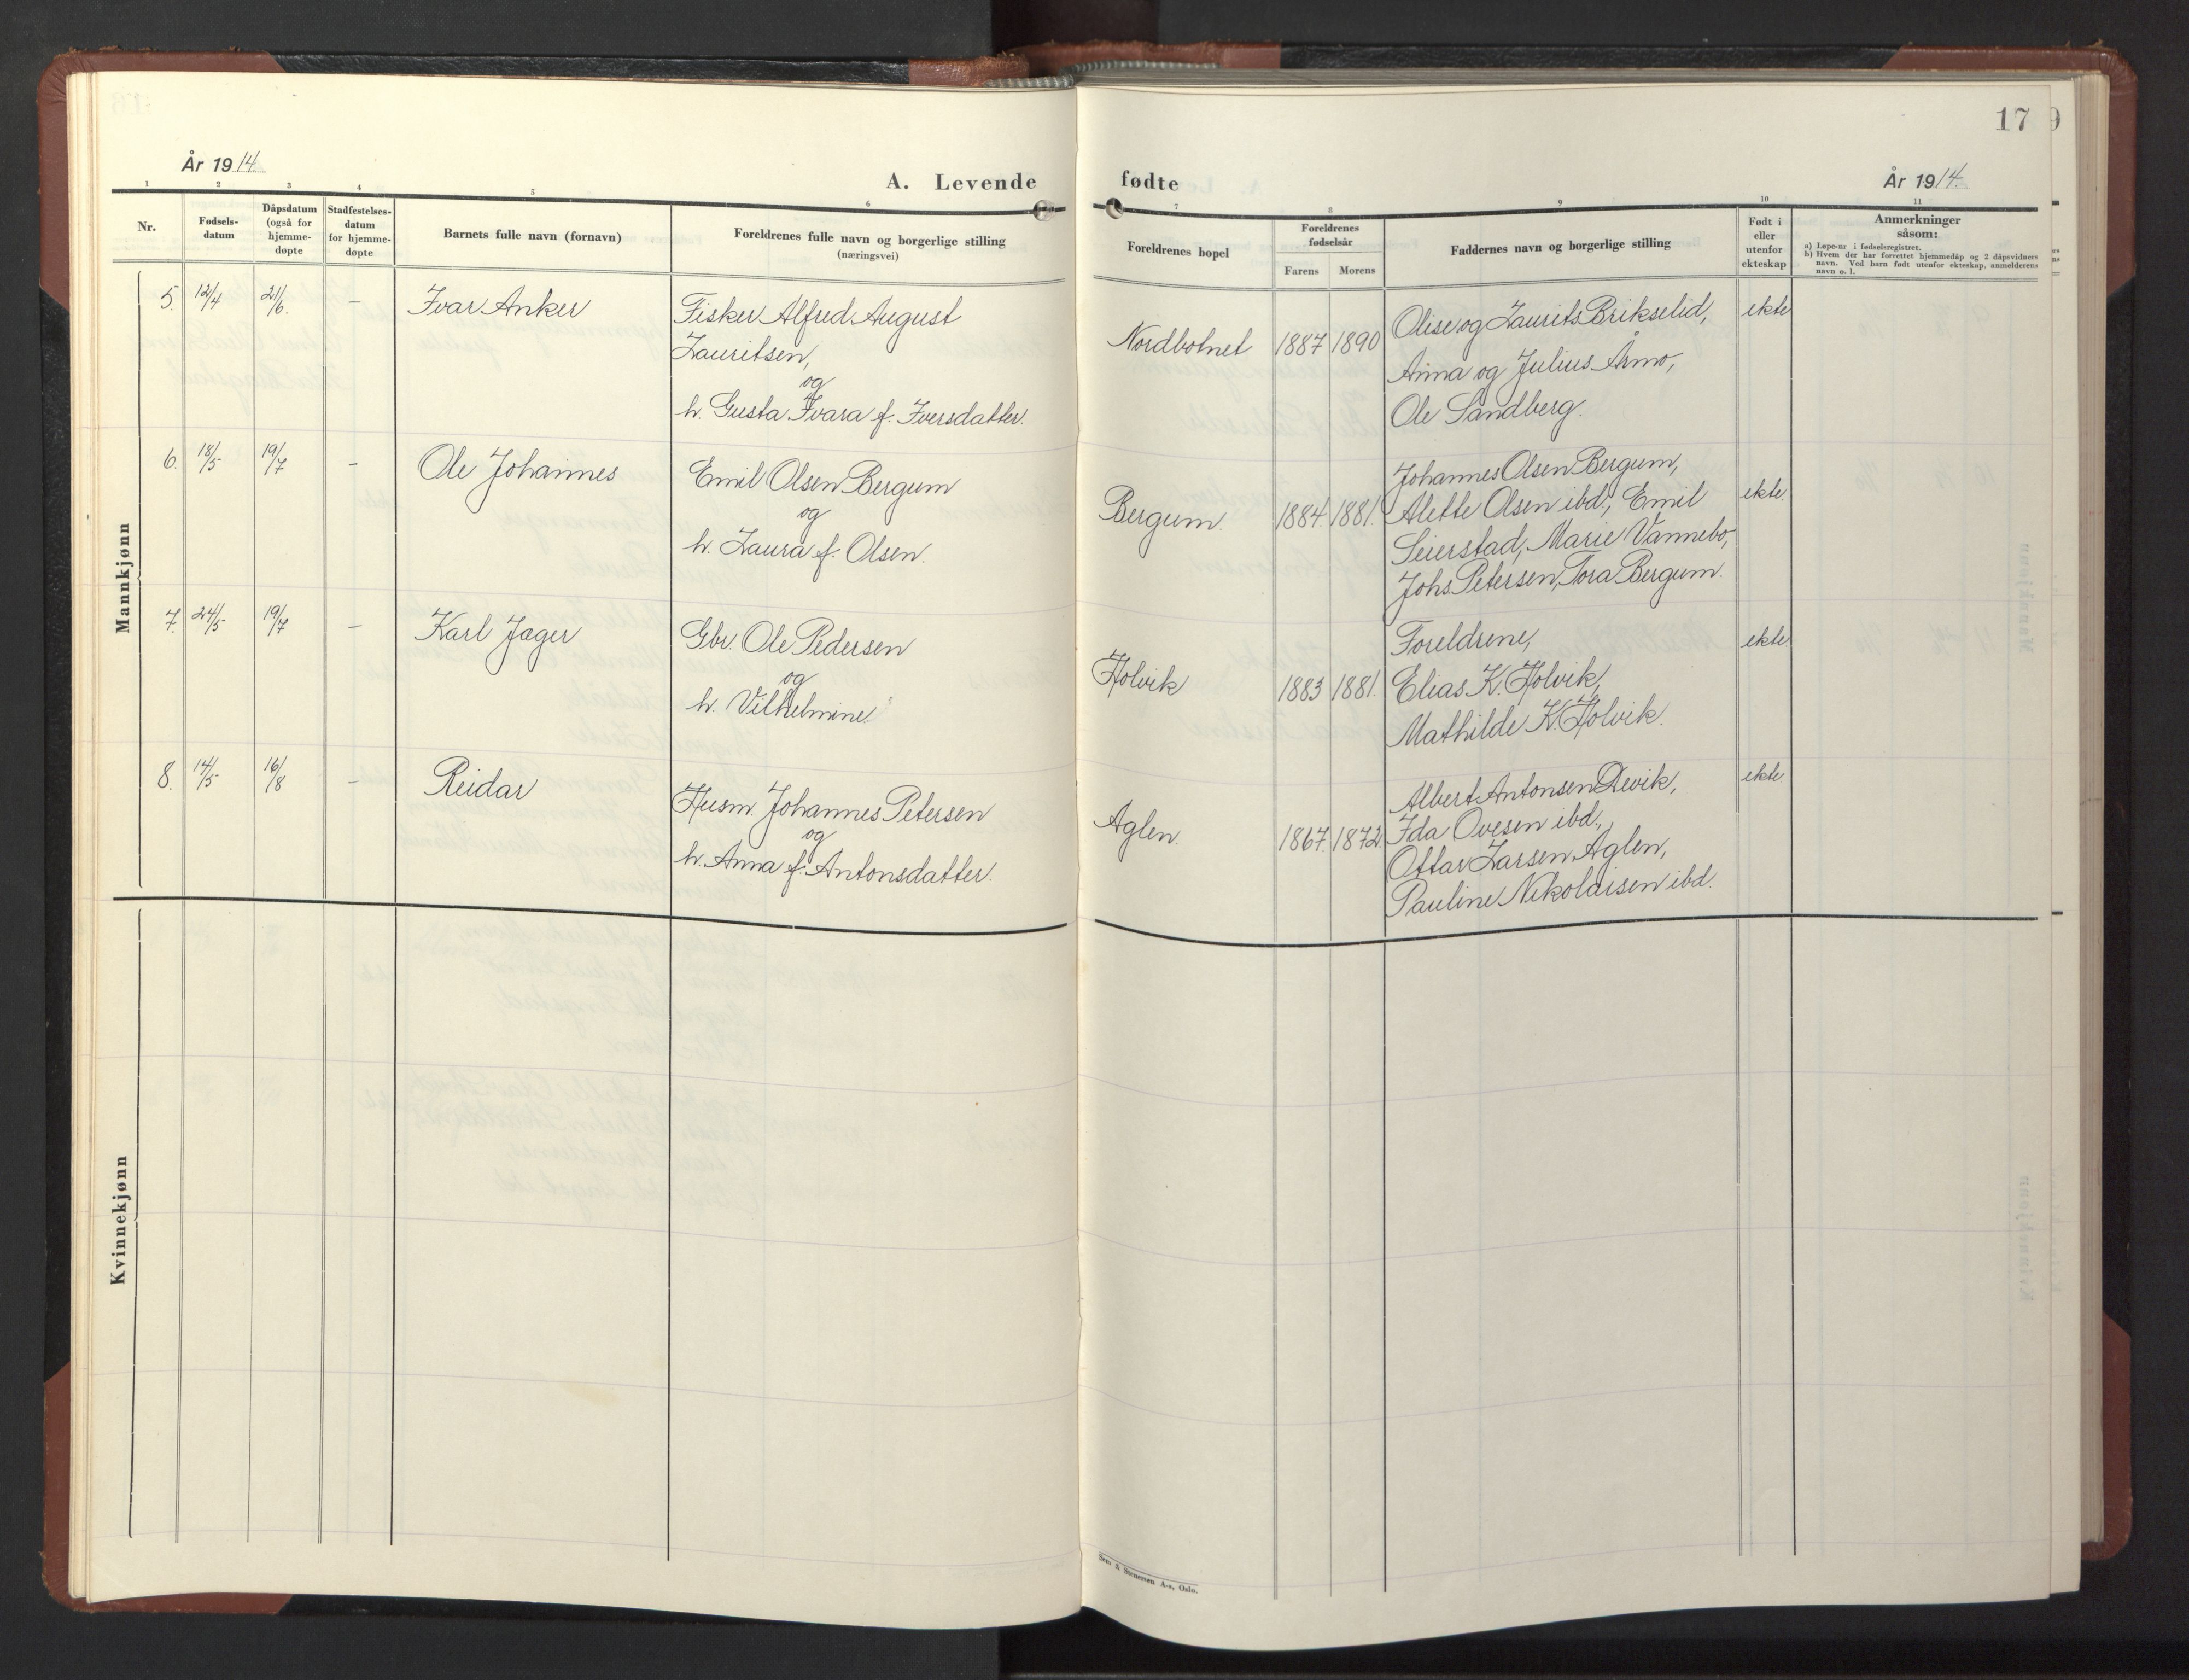 17
År 1914.
A. Levende
fødte
År 1914.
1 2 3 4 5 6 7 8 9 10 11
Nr.
Fødsels-
datum
Dåpsdatum
(også for
hjemme-
døpte
Stadfestelses-
datum
for hjemme-
døpte
Barnets fulle navn (fornavn)
Foreldrenes fulle navn og borgerlige stilling
(næringsvei)
Foreldrenes bopel
Foreldrenes
fødselsår
Farens Morens
Faddernes navn og borgerlige stilling
Født i
eller
utenfor
ekteskap
Anmerkninger
såsom:
a) Løpe-nr i fødselsregistret.
b) Hvem der har forrettet hjemmedåp og 2 dåpsvidners
navn. Ved barn født utenfor ekteskap, anmelderens
navn o. l.
Mannkjønn
5. 12/4 21/6. – Ivar Anker
Fisker Alfred August
Lauritsen,
og
h. Gusta Ivara f. Iversdatter.
Nordbotnet 1887 1890
Olise og Laurits Brikselid,
Anna og Julius Årmo,
Ole Sandberg.
ekte
6. 18/5 19/7 – Ole Johannes
Emil Olsen Bergum
og
h. Laura f. Olsen.
Bergum. 1884. 1881.
Johannes Olsen Bergum,
Alette Olsen ibd., Emil
Seierstad, Marie Vannebo,
Johs. Petersen, Tora Bergum.
ekte.
7. 24/5 19/7 – Karl Jæger
Gbr. Ole Pedersen
og
h. Vilhelmine.
Holvik 1883 1881.
Foreldrene,
Elias K. Holvik,
Mathilde K. Holvik.
ekte.
8. 14/5 16/8 – Reidar
Husm. Johannes Petersen
og
h. Anna f. Antonsdatter.
Aglen. 1867. 1872.
Albert Antonsen Devik,
Ida Ovesen ibd.,
Ottar Larsen Aglen,
Pauline Nikolaisen ibd.
ekte
Kvinnekjønn
Sem & Stenersen A-s, Oslo.